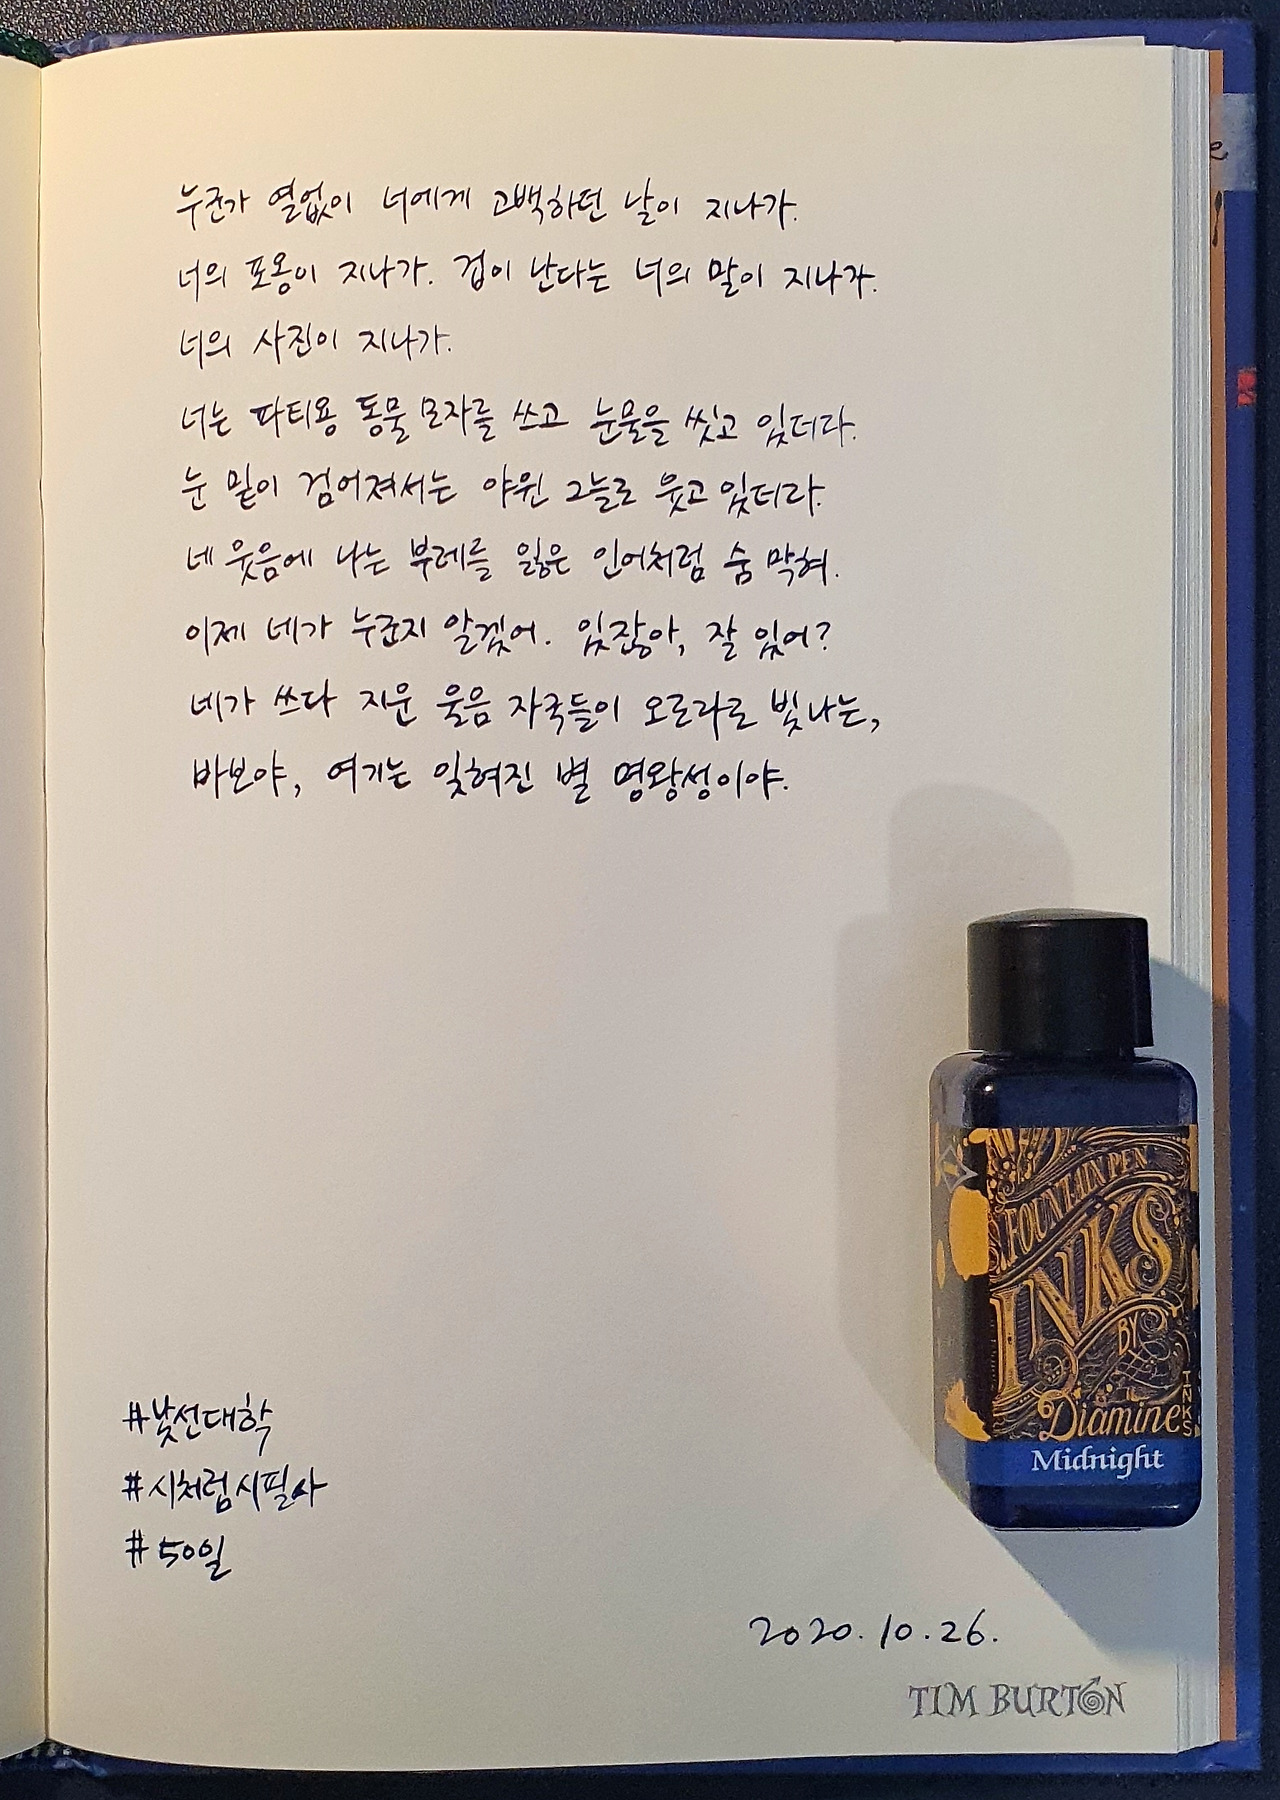 누군가 열없이 너에게 고백하던 날이 지나가.
너의 포옹이 지나가. 겁이 난다는 너의 말이 지나가.
너의 사진이 지나가.
너는 파티용 동물 모자를 쓰고 눈물을 씻고 있더라.
눈 밑이 검어져서는 야윈 그늘로 웃고 있더라.
네 웃음에 나는 부레를 잃은 인어처럼 숨 막혀.
이제 네가 누군지 알겠어. 있잖아, 잘 있어?
네가 쓰다 지운 울음 자국들이 오로라로 빛나는,
바보야, 여기는 잊혀진 별 명왕성이야.
FOUNTAIN PEN
INKS
BY
Diamine
INKS
Midnight
#낯선대학
#시처럼시필사
#50일
2020.10.26.
TIM BURTON